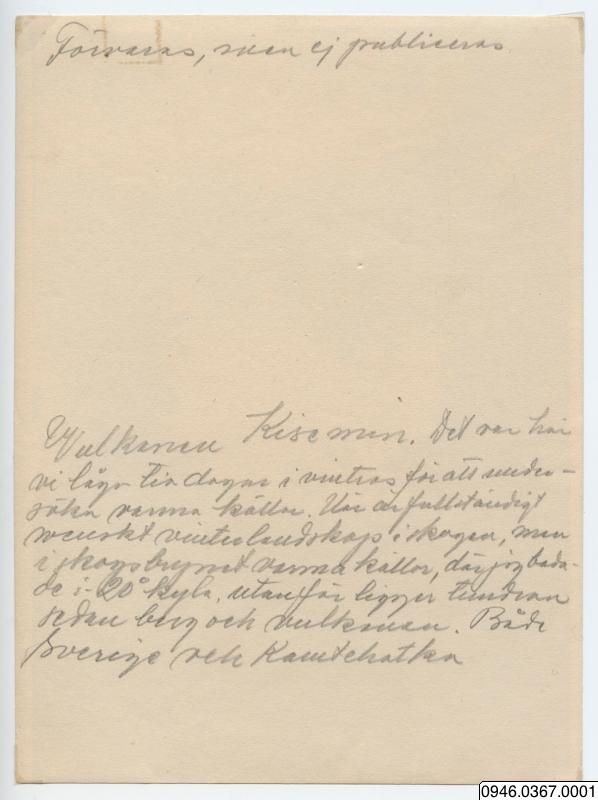 Förvaras, men ej publiceras.
Vulkanen Kisemin. Det var här
vi lågo tio dagar i vintras för att under-
söka varma källor. Här är fullständigt
svenskt vinterlandskap i skogen, men
i skogsbrynet varma källor, där jag bada-
de i -20° kyla, utanför ligger tundran
sedan berg och vulkanen. Både
Sverige och Kamtchatka
0946.0367.0001